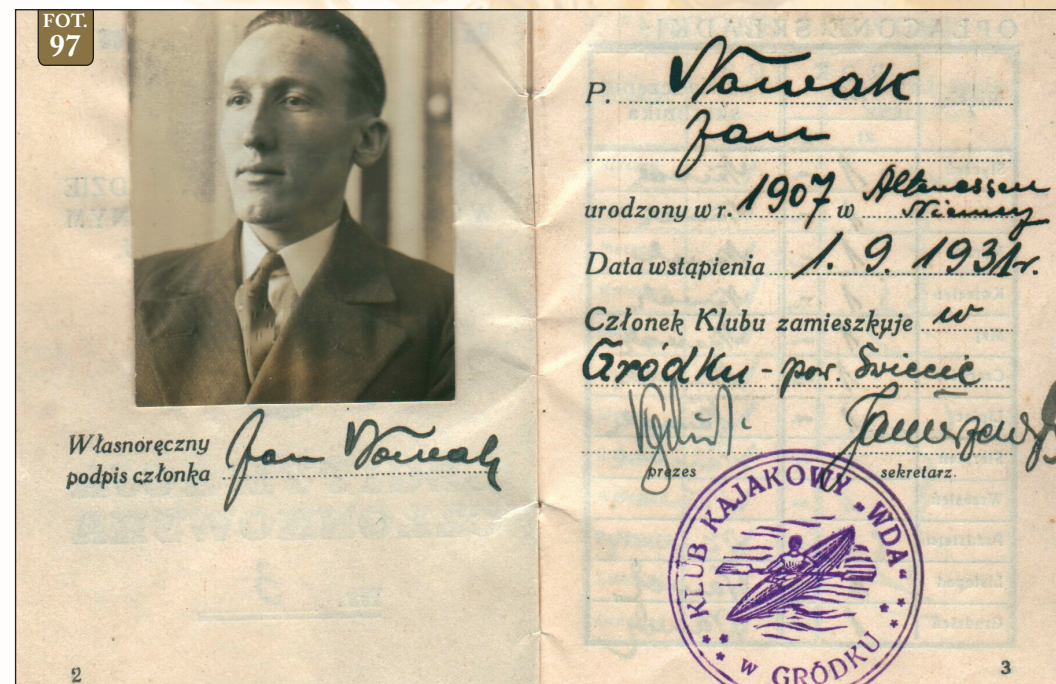 FOT.
97
Własnoręczny
podpis członka Jan Nowak
2
P. Nowak
Jan
urodzony w r. 1907 w Altenessen
Niemcy
Data wstąpienia 1. 9. 1931r.
Członek Klubu zamieszkuje w
Gródku - pow. Świecie
prezes sekretarz.
KLUB KAJAKOWY „WDA"
W GRÓDKU
3